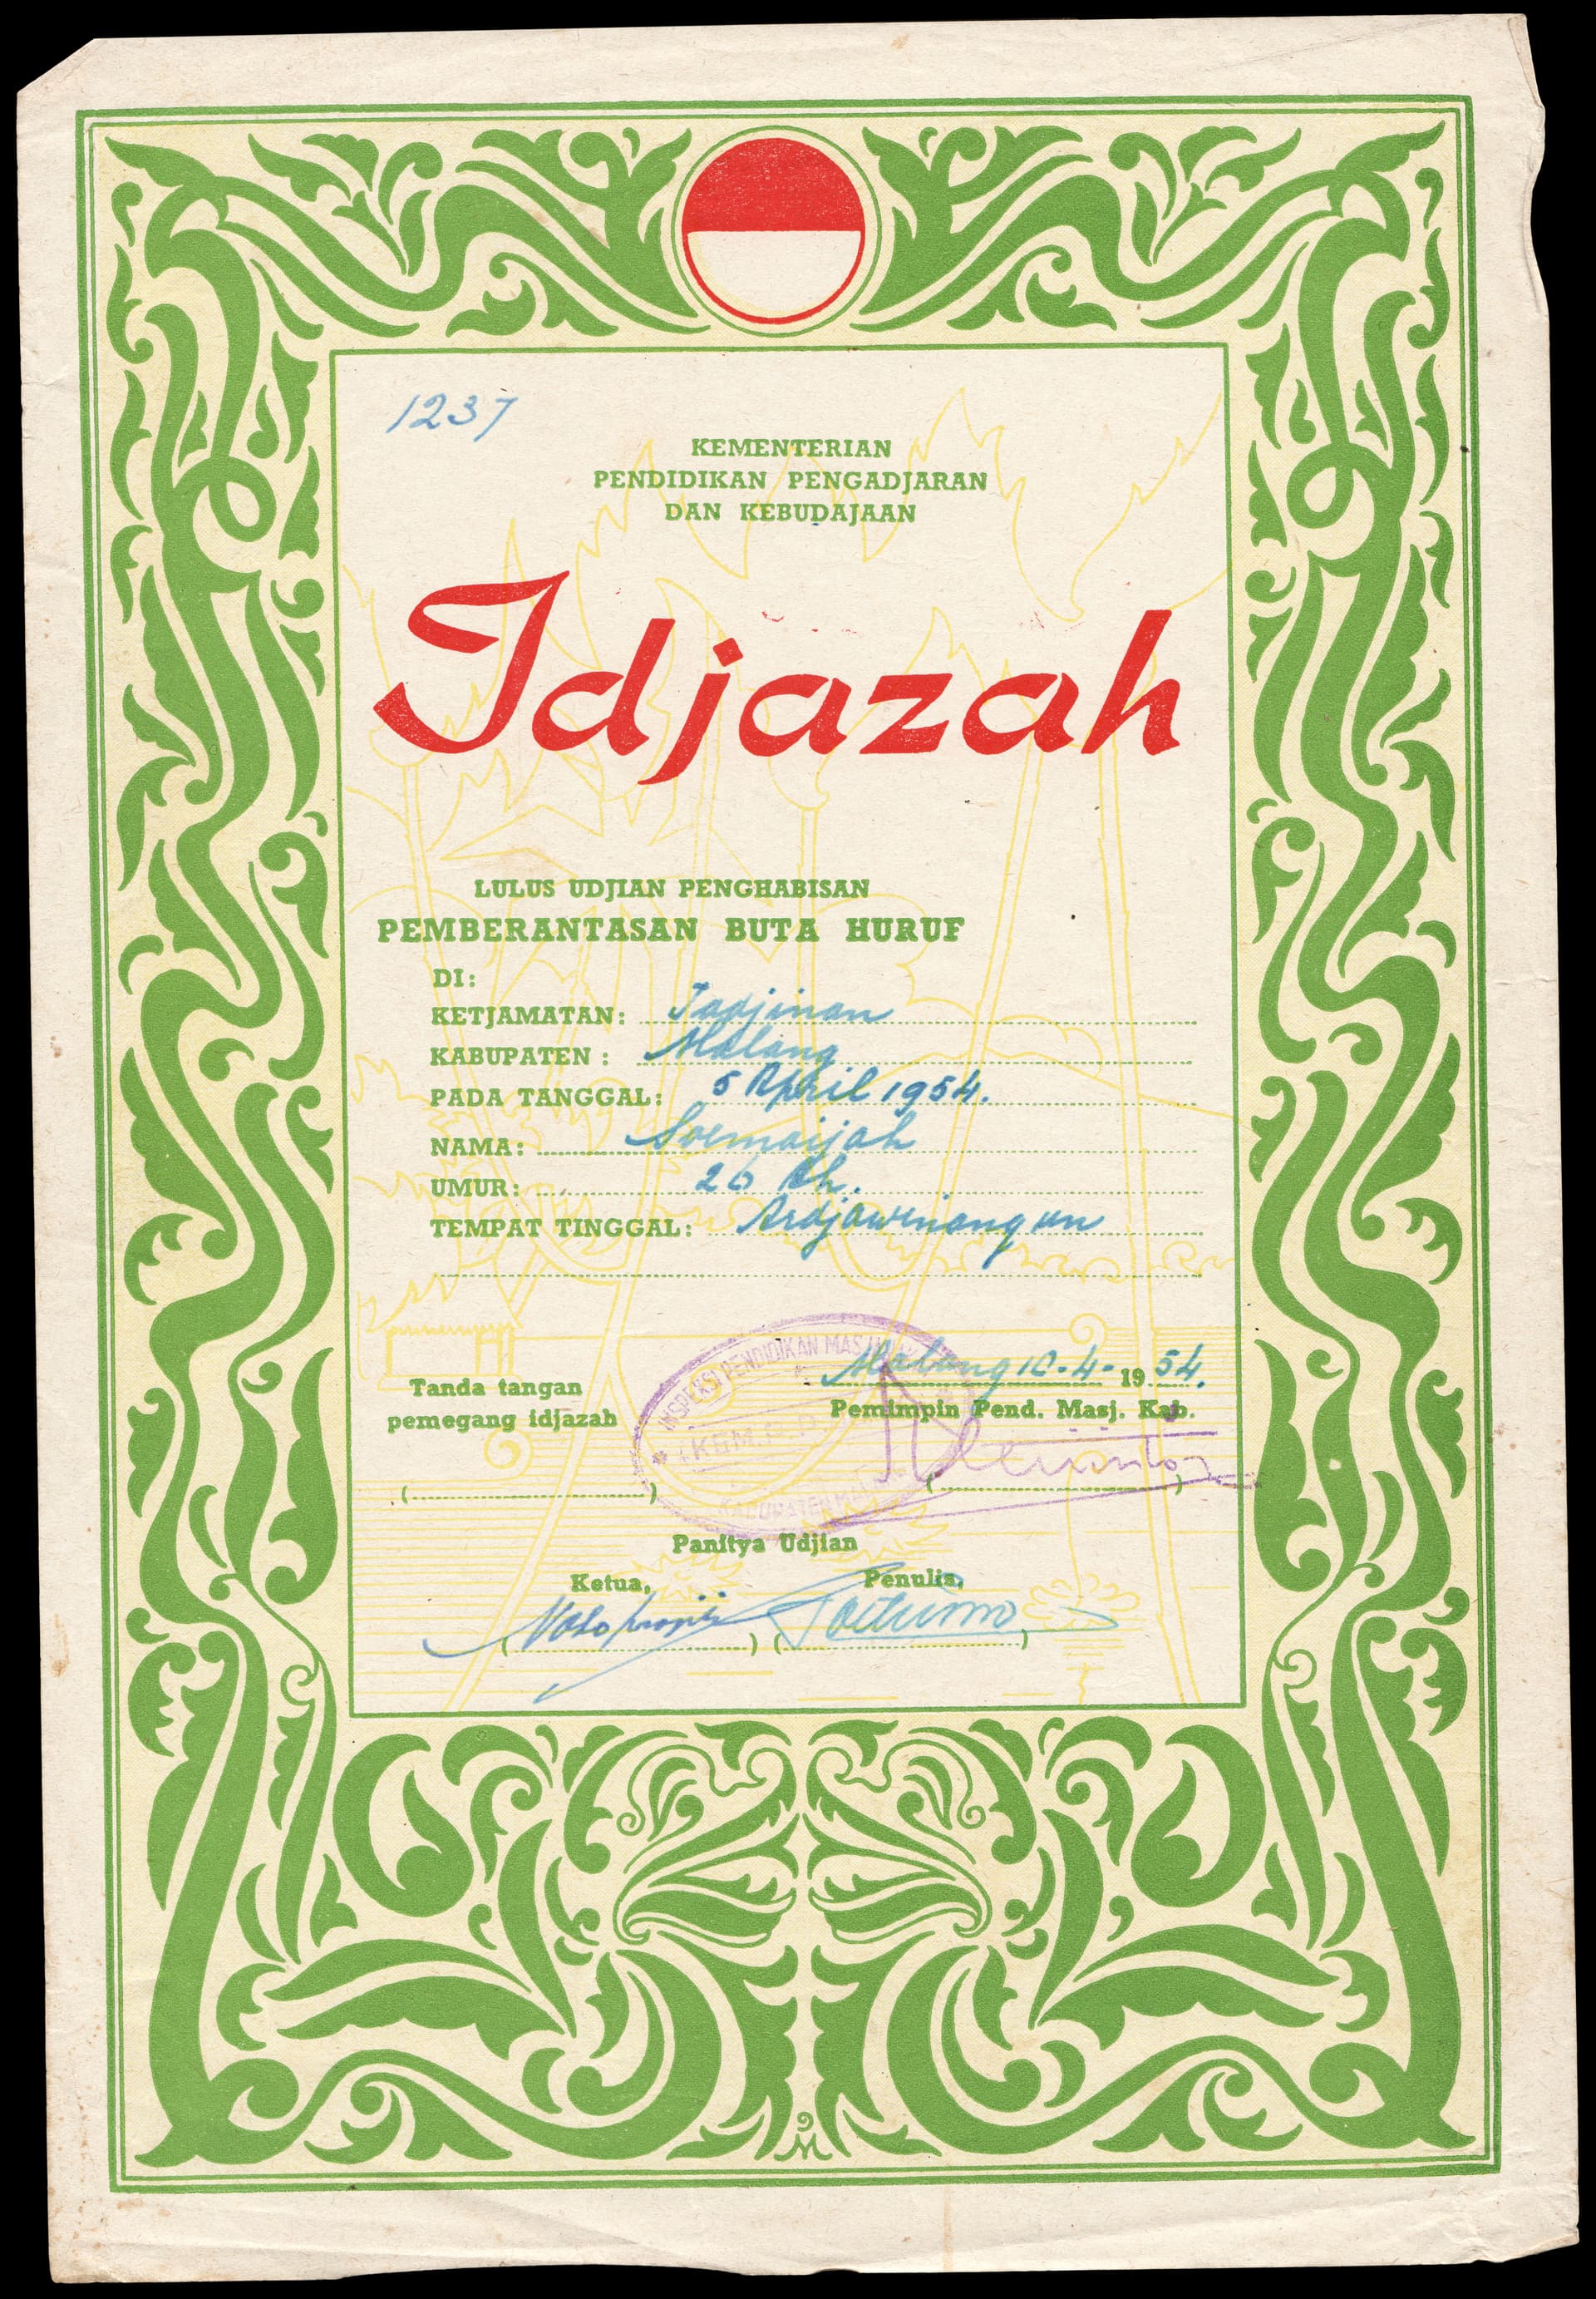 1237
KEMENTERIAN
PENDIDIKAN PENGADJARAN
DAN KEBUDAJAAN
Idjazah
LULUS UDJIAN PENGHABISAN
PEMBERANTASAN BUTA HURUF
DI:
KETJAMATAN: Tadjinan
KABUPATEN: Malang
PADA TANGGAL: 5 April 1954.
NAMA: Soemaijah
UMUR: 26 th.
TEMPAT TINGGAL: Ardjowinangun
INSPEKSI PENDIDIKAN
KABUPATEN
Malang 10-4-1954.
Tanda tangan
pemegang idjazah
Pemimpin Pend. Masj. Kab.
(                    )
(                    )
Panitya Udjian
Ketua,
Penulis,
(                    ) (                    )